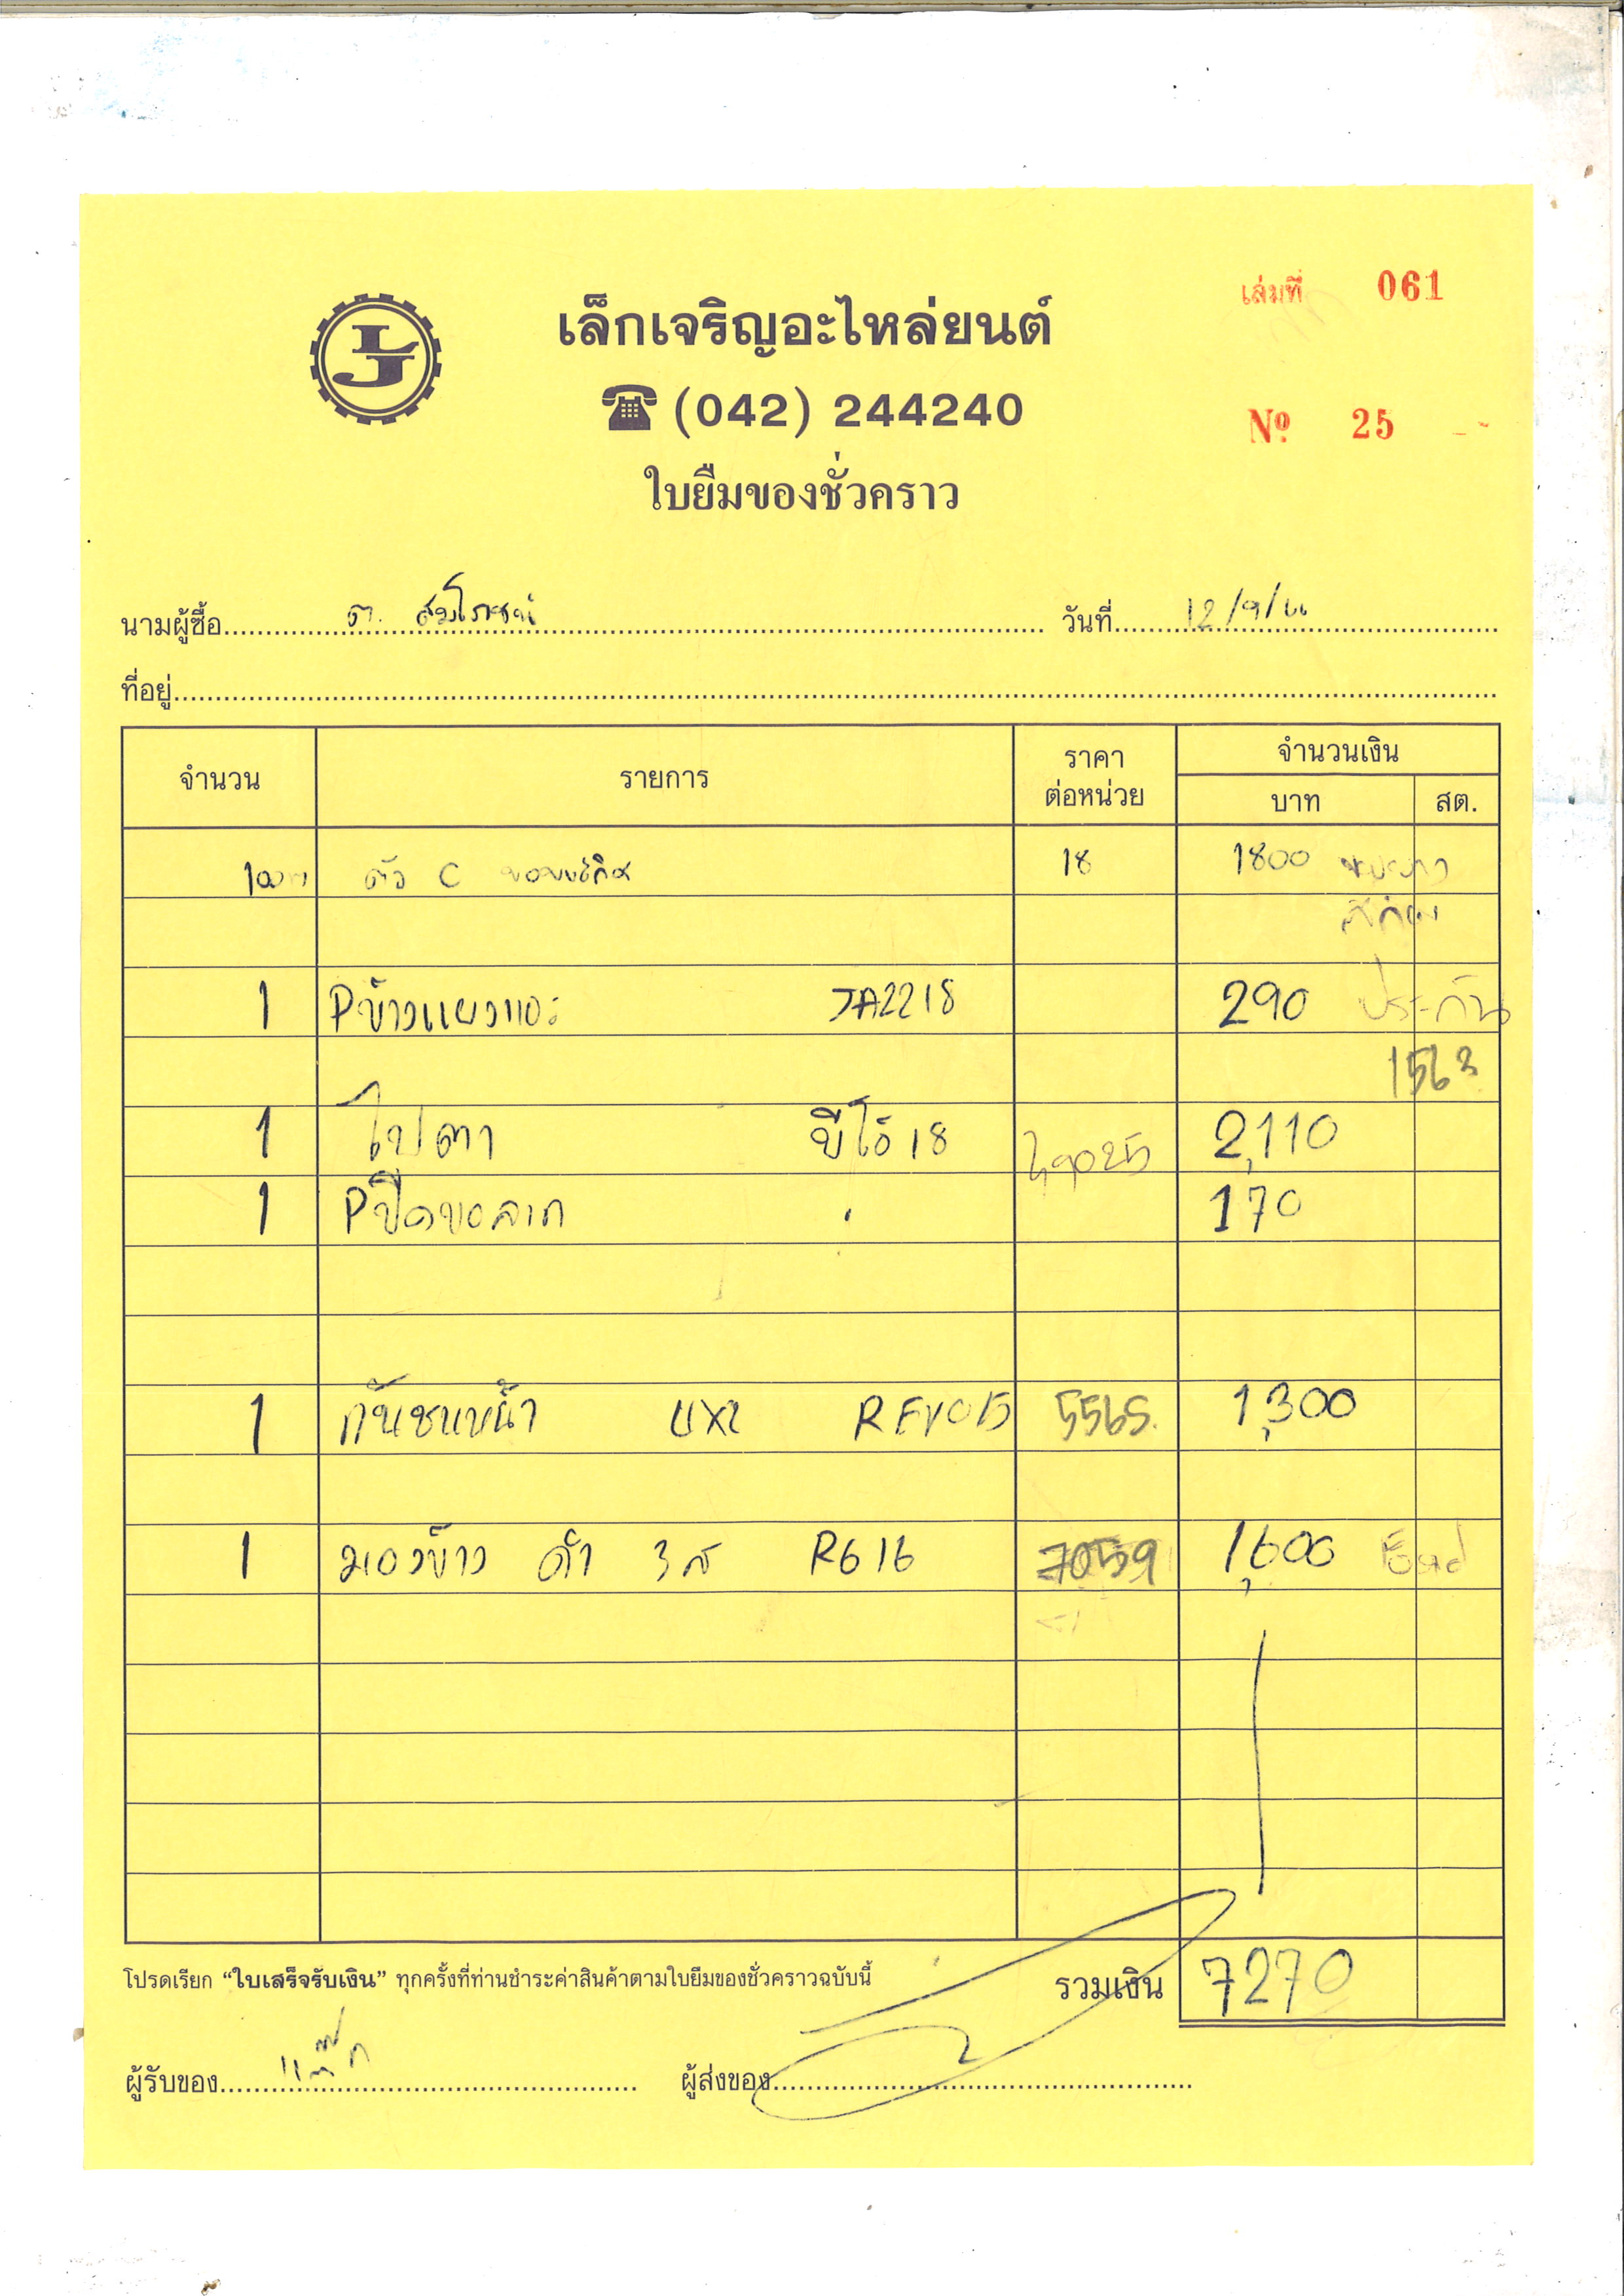 เล่มที่ 061
เล็กเจริญอะไหล่ยนต์
(042) 244240
Nº 25
ใบยืมของชั่วคราว
นามผู้ซื้อ วันที่ 12/9/66
ที่อยู่
จำนวน รายการ ราคาต่อหน่วย จำนวนเงิน
บาท สต.
ตัว C 18 1800
1 Pข้างแผงแอะ JA2218 290 ประกัน
1563
1 ไฟตา วีโก้ 18 2,110
1 Pปิดขอลาก 170
1 กันชนหน้า 4X2 REVO15 5565 1,300
1 มองข้าง ดำ 3ส R616 7059 1,600
โปรดเรียก “ใบเสร็จรับเงิน” ทุกครั้งที่ท่านชำระค่าสินค้าตามใบยืมของชั่วคราวฉบับนี้ รวมเงิน 7270
ผู้รับของ ผู้ส่งของ